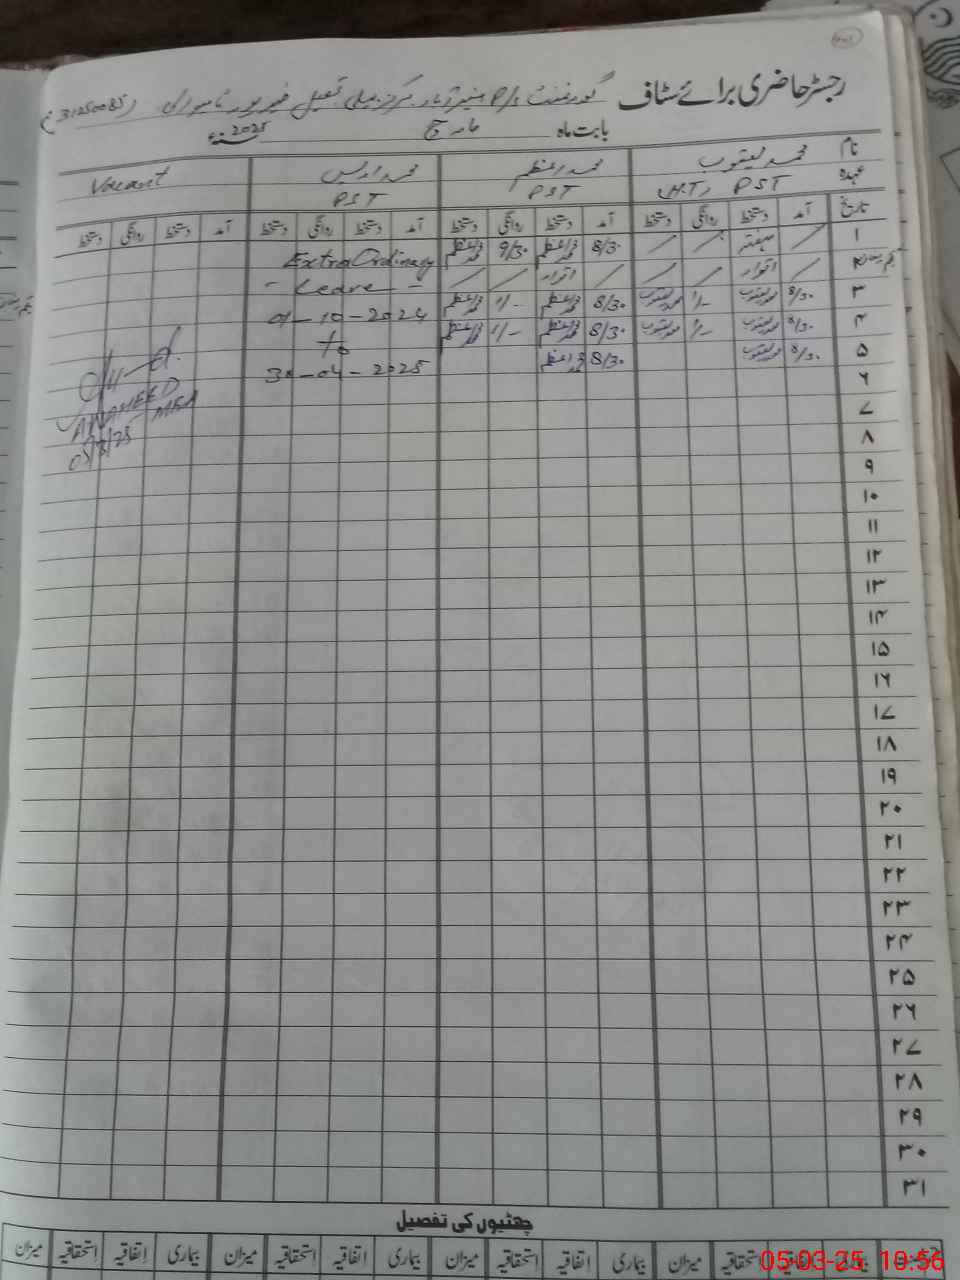 رجسٹر حاضری برائے سٹاف گورنمنٹ P/S (31250085)
بابت ماہ مارچ 2025 سنہء
نام محمد یعقوب محمد اعظم محمد ادریس Vacant
عہدہ PST (H.T) PST PST
تاریخ آمد دستخط روانگی دستخط آمد دستخط روانگی دستخط آمد دستخط روانگی دستخط آمد دستخط روانگی دستخط
۱ ہفتہ 8/30 محمد اعظم 9/30 محمد اعظم Extra Ordinary
۲ اتوار اتوار - Leave -
۳ 8/30 محمد یعقوب 1/- محمد یعقوب 8/30 محمد اعظم 1/- محمد اعظم 01-10-2024
۴ 8/30 محمد یعقوب 1/- محمد یعقوب 8/30 محمد اعظم 1/- محمد اعظم to
۵ 8/30 محمد یعقوب 8/30 محمد اعظم 30-04-2025
۶
۷
۸
۹
۱۰
۱۱
۱۲
۱۳
۱۴
۱۵
۱۶
۱۷
۱۸
۱۹
۲۰
۲۱
۲۲
۲۳
۲۴
۲۵
۲۶
۲۷
۲۸
۲۹
۳۰
۳۱
MEA
چھٹیوں کی تفصیل
بیماری اتفاقیہ استحقاقیہ میزان بیماری اتفاقیہ استحقاقیہ میزان بیماری اتفاقیہ استحقاقیہ میزان بیماری اتفاقیہ استحقاقیہ میزان
05-03-25 10:56